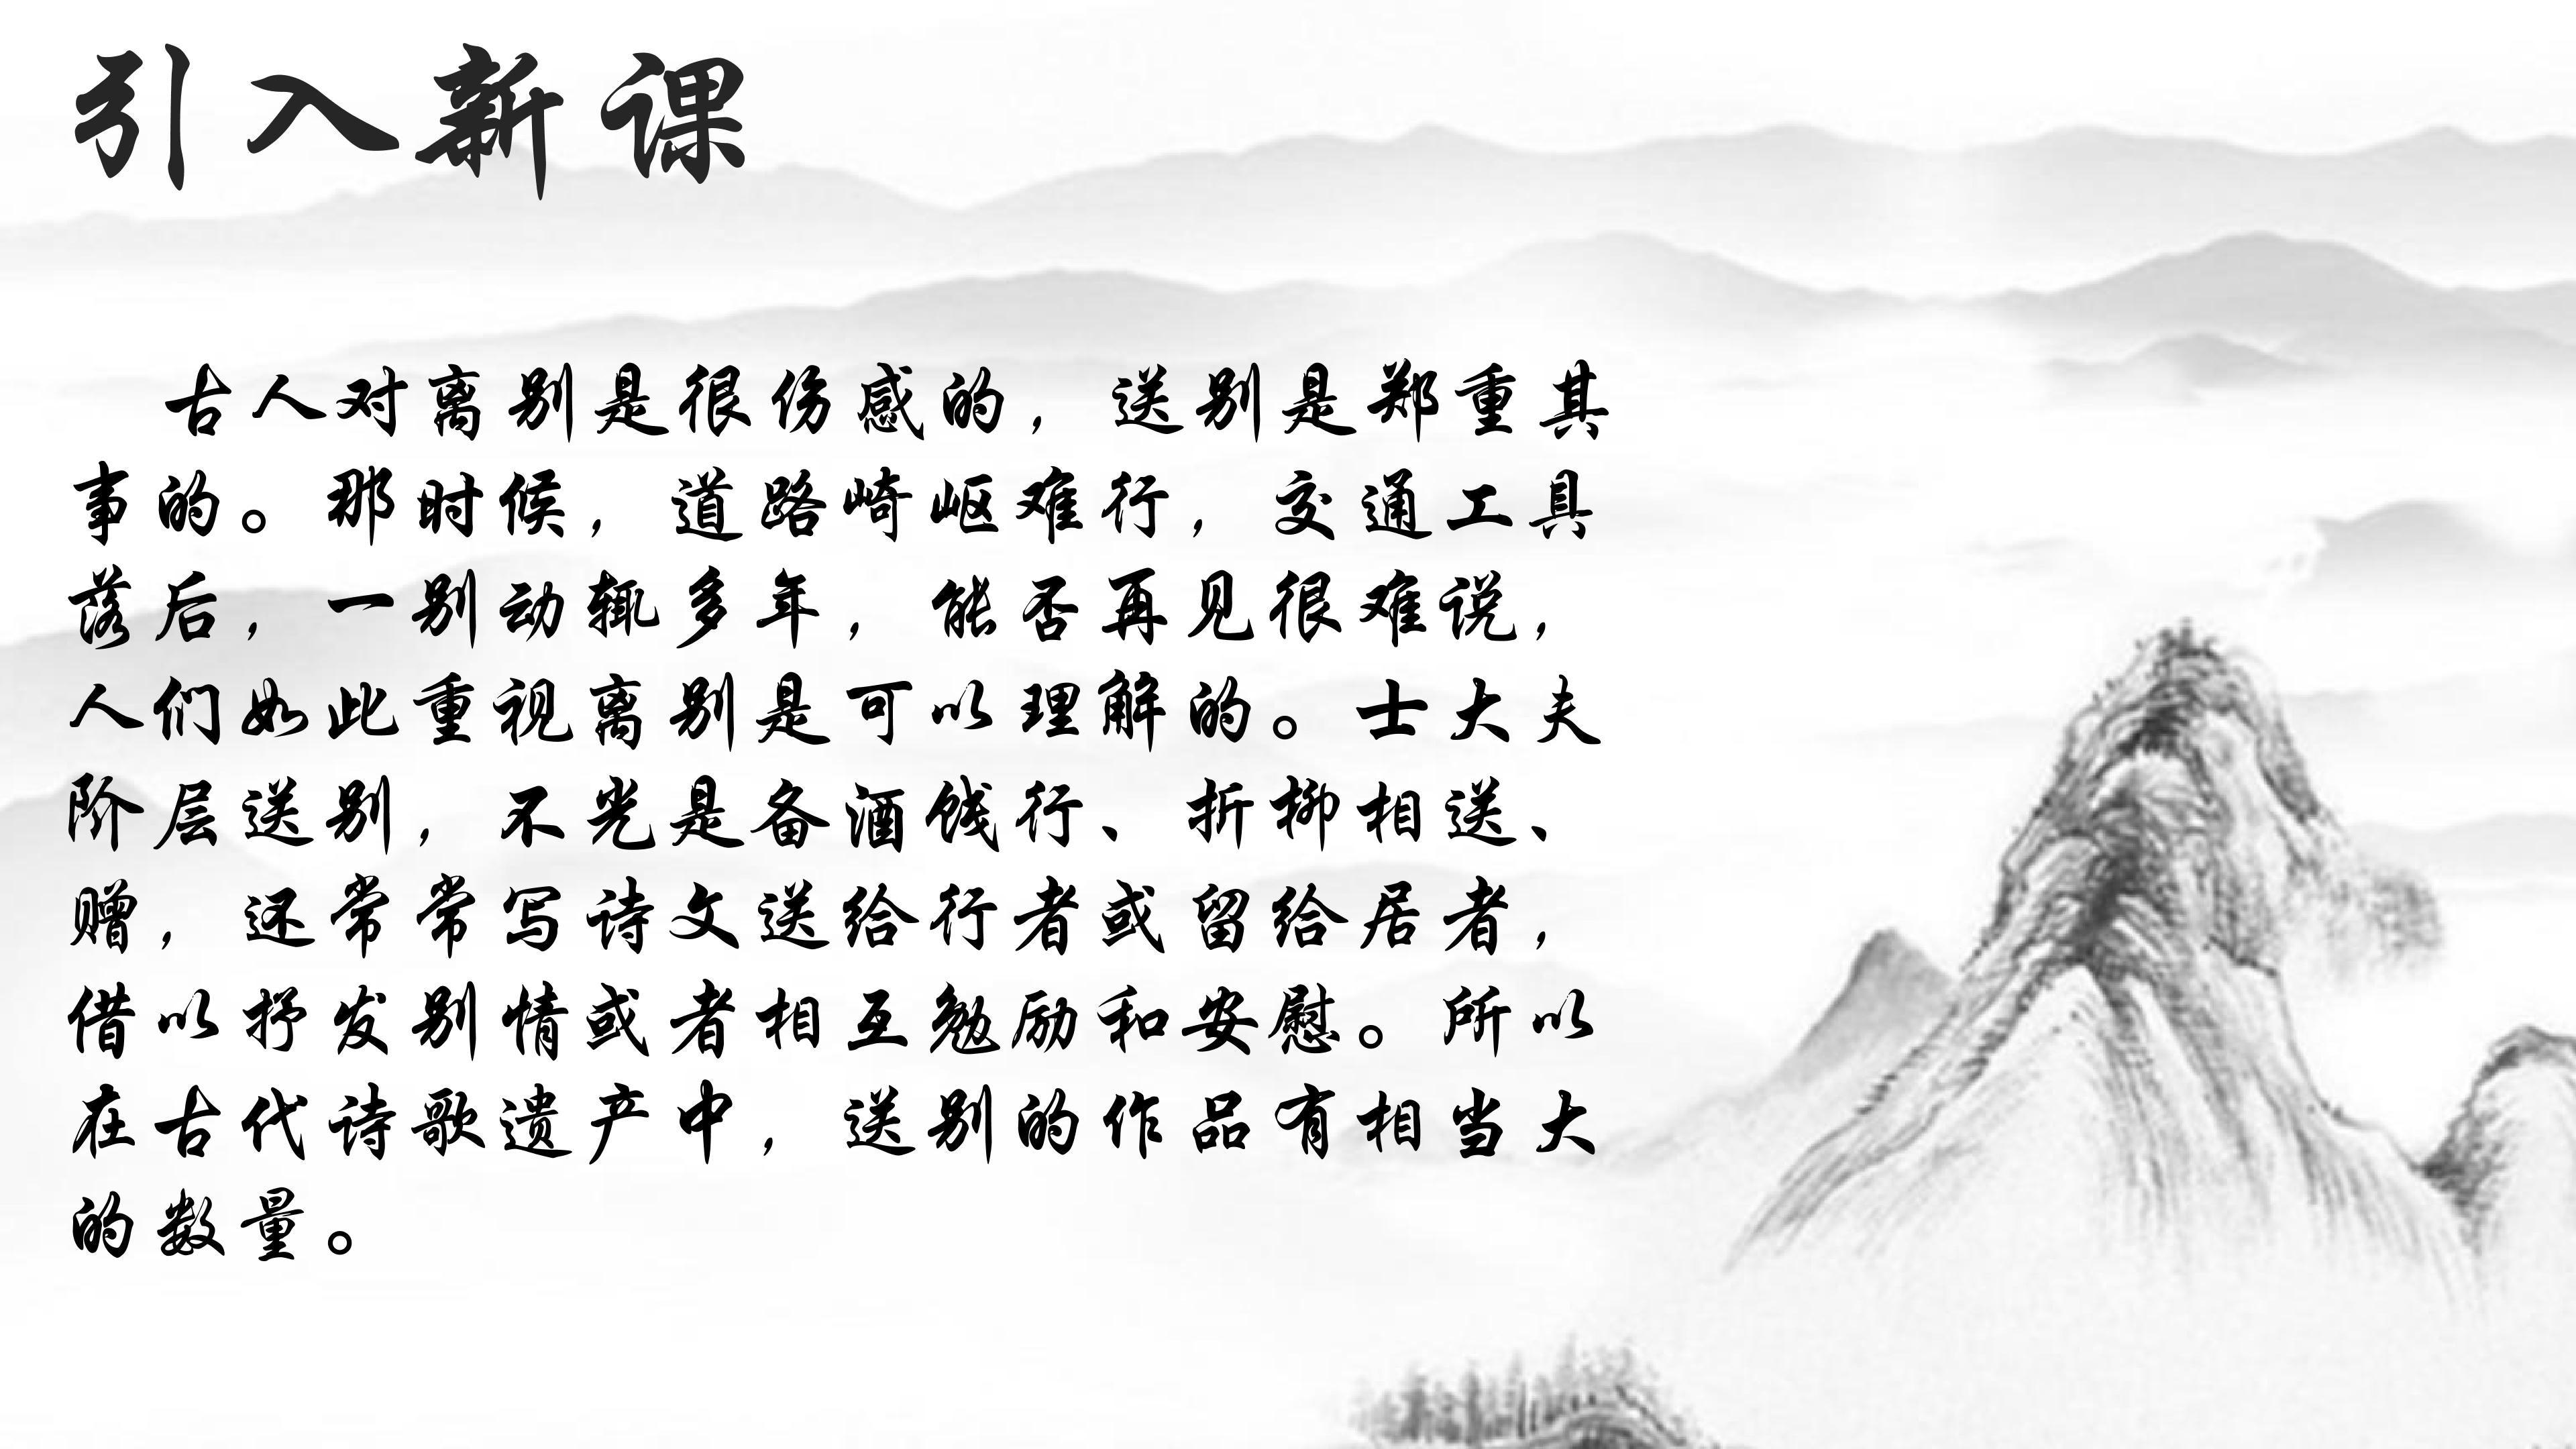 引入新课
古人对离别是很伤感的，送别是郑重其
事的。那时候，道路崎岖难行，交通工具
落后，一别动辄多年，能否再见很难说，
人们如此重视离别是可以理解的。士大夫
阶层送别，不光是备酒饯行、折柳相送、
赠，还常常写诗文送给行者或留给居者，
借以抒发别情或者相互勉励和安慰。所以
在古代诗歌遗产中，送别的作品有相当大
的数量。